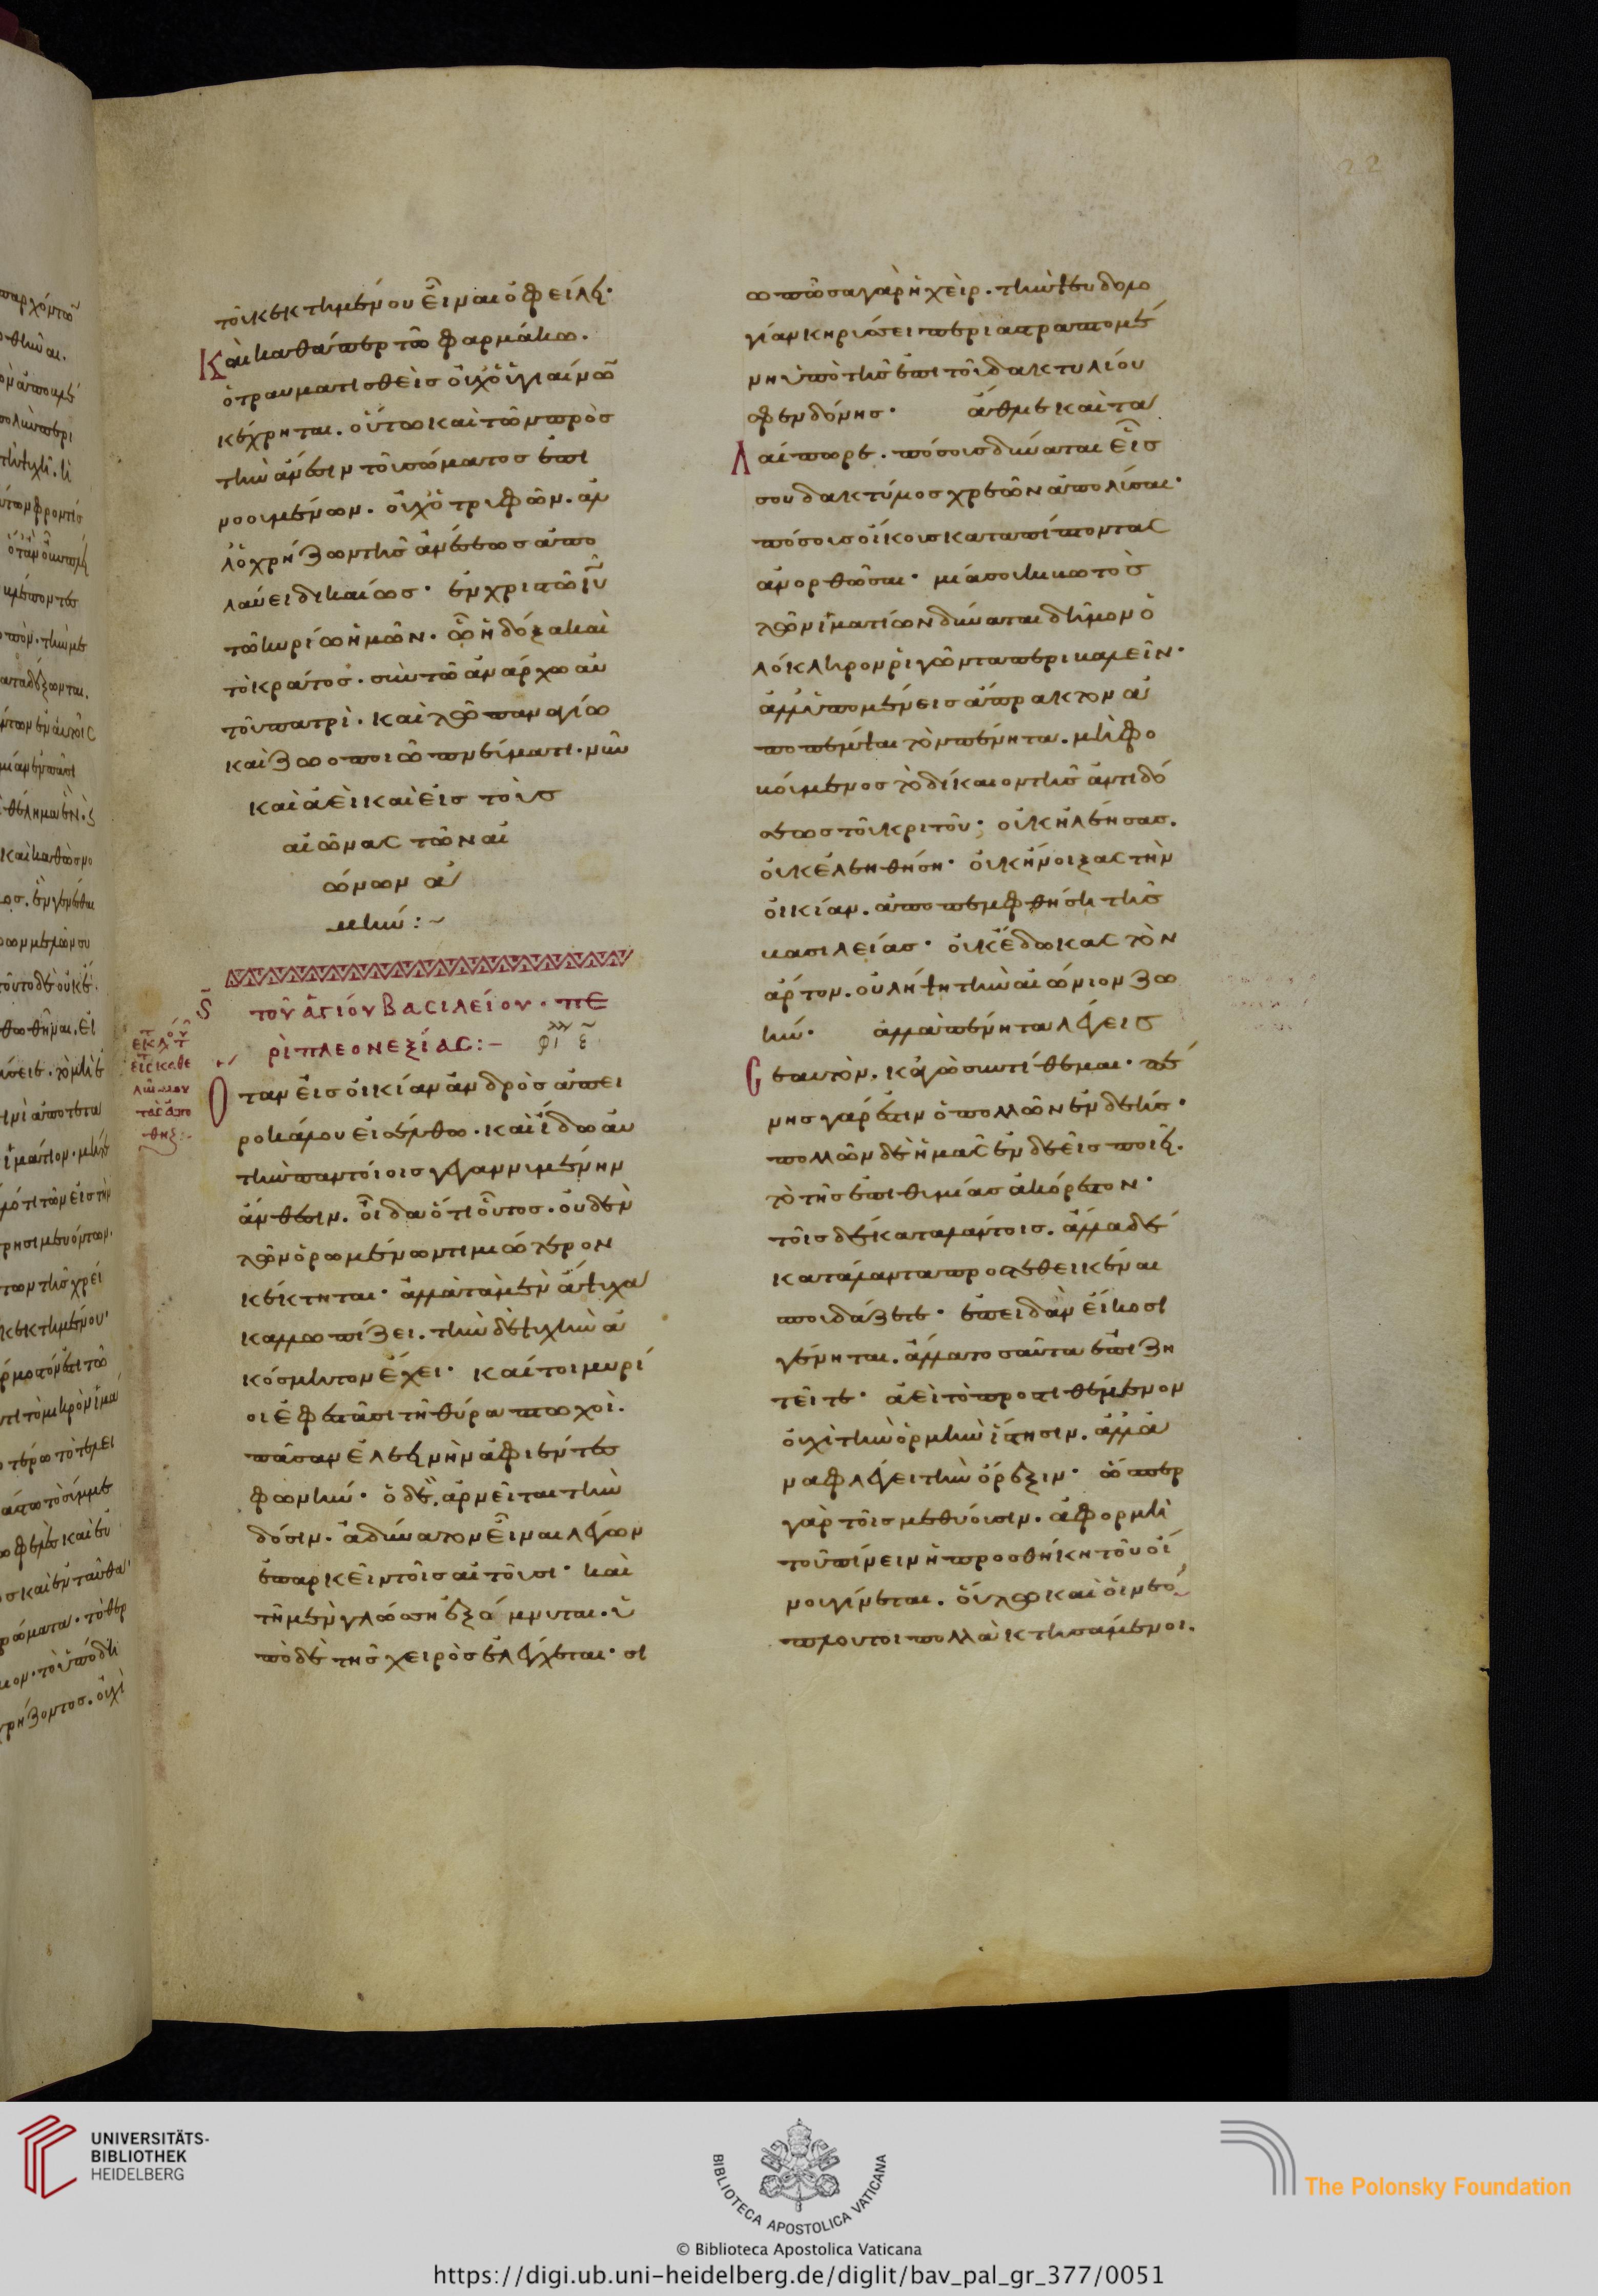 τοῦ κεκτημένου εἶναι ὀφείλει·
Καὶ καθάπερ τῶ φαρμάκω.
ὁ τραυματισθεὶς οὐχ ὁ ὑγιαίνων
κέχρηται. οὕτω καὶ τῶν πρὸς
τὴν ἄνεσιν τοῦ σώματος ἐπι
νοουμένων. οὐχ ὁ τρυφῶν. ἀλ
λ' ὁ χρήζων τῆς ἀνέσεως ἀπο
λαύει δικαίως· ἐν χριστῶ ἰῦ
τῶ κυρίω ἡμῶν. ὧ ἡ δόξα καὶ
τὸ κράτος. σὺν τῶ ἀνάρχω αὐ
τοῦ πατρὶ. καὶ τῶ παναγίω
καὶ ζωοποιῶ πνεύματι. νῦν
καὶ ἀεὶ καὶ εἰς τοὺς
αἰῶνας τῶν αἰ
ώνων ἀ
μήν:~
τοῦ ἁγίου Βασιλείου· πε
ρὶ πλεονεξίας:–
καθε
λῶ μου
τὰς ἀπο
Ὅταν εἰς οἰκίαν ἀνδρὸς ἀπει
ροκάλου εἰσέλθω. καὶ ἴδω αὐ
τὴν παντοίοις γεγανωμένην
ἄνθεσιν. οἶδα ὅτι οὗτος. οὐδὲν
τῶν ὁρωμένων τιμιώτερον
κέκτηται· ἀλλὰ τὰ μὲν ἄψυχα
καλλωπίζει. τὴν δὲ ψυχὴν ἀ
κόσμητον ἔχει· καίτοι μυρί
οι ἐφεστᾶσι τῆ θύρα πτωχοὶ.
πᾶσαν ἐλεεινὴν ἀφιέντες
φωνήν· ὁ δὲ, ἀρνεῖται τὴν
δόσιν. ἀδύνατον εἶναι λέγων
ἐπαρκεῖν τοῖς αἰτοῦσι· καὶ
τῆ μὲν γλώσση ἐξόμνυται. ὑ
πὸ δὲ τῆς χειρὸς ἐλέγχεται· σι
ωπῶσα γὰρ ἡ χεὶρ. τὴν ψευδολο
γίαν κηρύσσει περιαστραπτομέ
νη ὑπὸ τῆς ἐπὶ τοῦ δακτυλίου
σφενδόνης· ἄθλιε καὶ τα
λαίπωρε. πόσους δύναται εἷς
σου δακτύλιος χρεῶν ἀπολῦσαι·
πόσους οἴκους καταπίπτοντας
ἀνορθῶσαι· μία σου κιβωτὸς
τῶν ἱματίων δύναται δῆμον ὁ
λόκληρον ῥιγῶντα περιβαλεῖν·
ἀλλ' ὑπομένεις ἄπρακτον ἀ
ποπέμψαι τὸν πένητα. μὴ φο
βούμενος τὸ δίκαιον τῆς ἀντιδό
σεως τοῦ κριτοῦ· οὐκ ἠλέησας.
οὐκ ἐλεηθήση· οὐκ ἤνοιξας τὴν
οἰκίαν. ἀποπεμφθήση τῆς
βασιλείας· οὐκ ἔδωκας τὸν
ἄρτον. οὐ λήψη τὴν αἰώνιον ζω
ήν· ἀλλὰ πένητα λέγεις
σεαυτὸν. κἀγὼ συντίθεμαι· πέ
νης γάρ ἐστιν ὁ πολλῶν ἐνδεής·
πολλῶν δὲ ἡμᾶς ἐνδεεῖς ποιεῖ.
τὸ τῆς ἐπιθυμίας ἀκόρεστον·
τοῖς δέκα ταλάντοις. ἄλλα δέ
κα τάλαντα προστεθεικέναι
σπουδάζετε· ἐπειδὰν εἴκοσι
γένηται. ἄλλα τοσαῦτα ἐπιζη
τεῖτε· ἀεὶ τὸ προστιθέμενον
οὐχὶ τὴν ὁρμὴν ἵστησιν. ἀλλ' ἀ
ναφλέγει τὴν ὄρεξιν· ὥσπερ
γὰρ τοῖς μεθύουσιν. ἀφορμὴ
τοῦ πίνειν ἡ προσθήκη τοῦ οἴ
νου γίνεται. οὕτω καὶ οἱ νεό
πλουτοι πολλὰ κτησάμενοι.
UNIVERSITÄTS-
BIBLIOTHEK
HEIDELBERG
BIBLIOTECA APOSTOLICA VATICANA
The Polonsky Foundation
© Biblioteca Apostolica Vaticana
https://digi.ub.uni-heidelberg.de/diglit/bav_pal_gr_377/0051